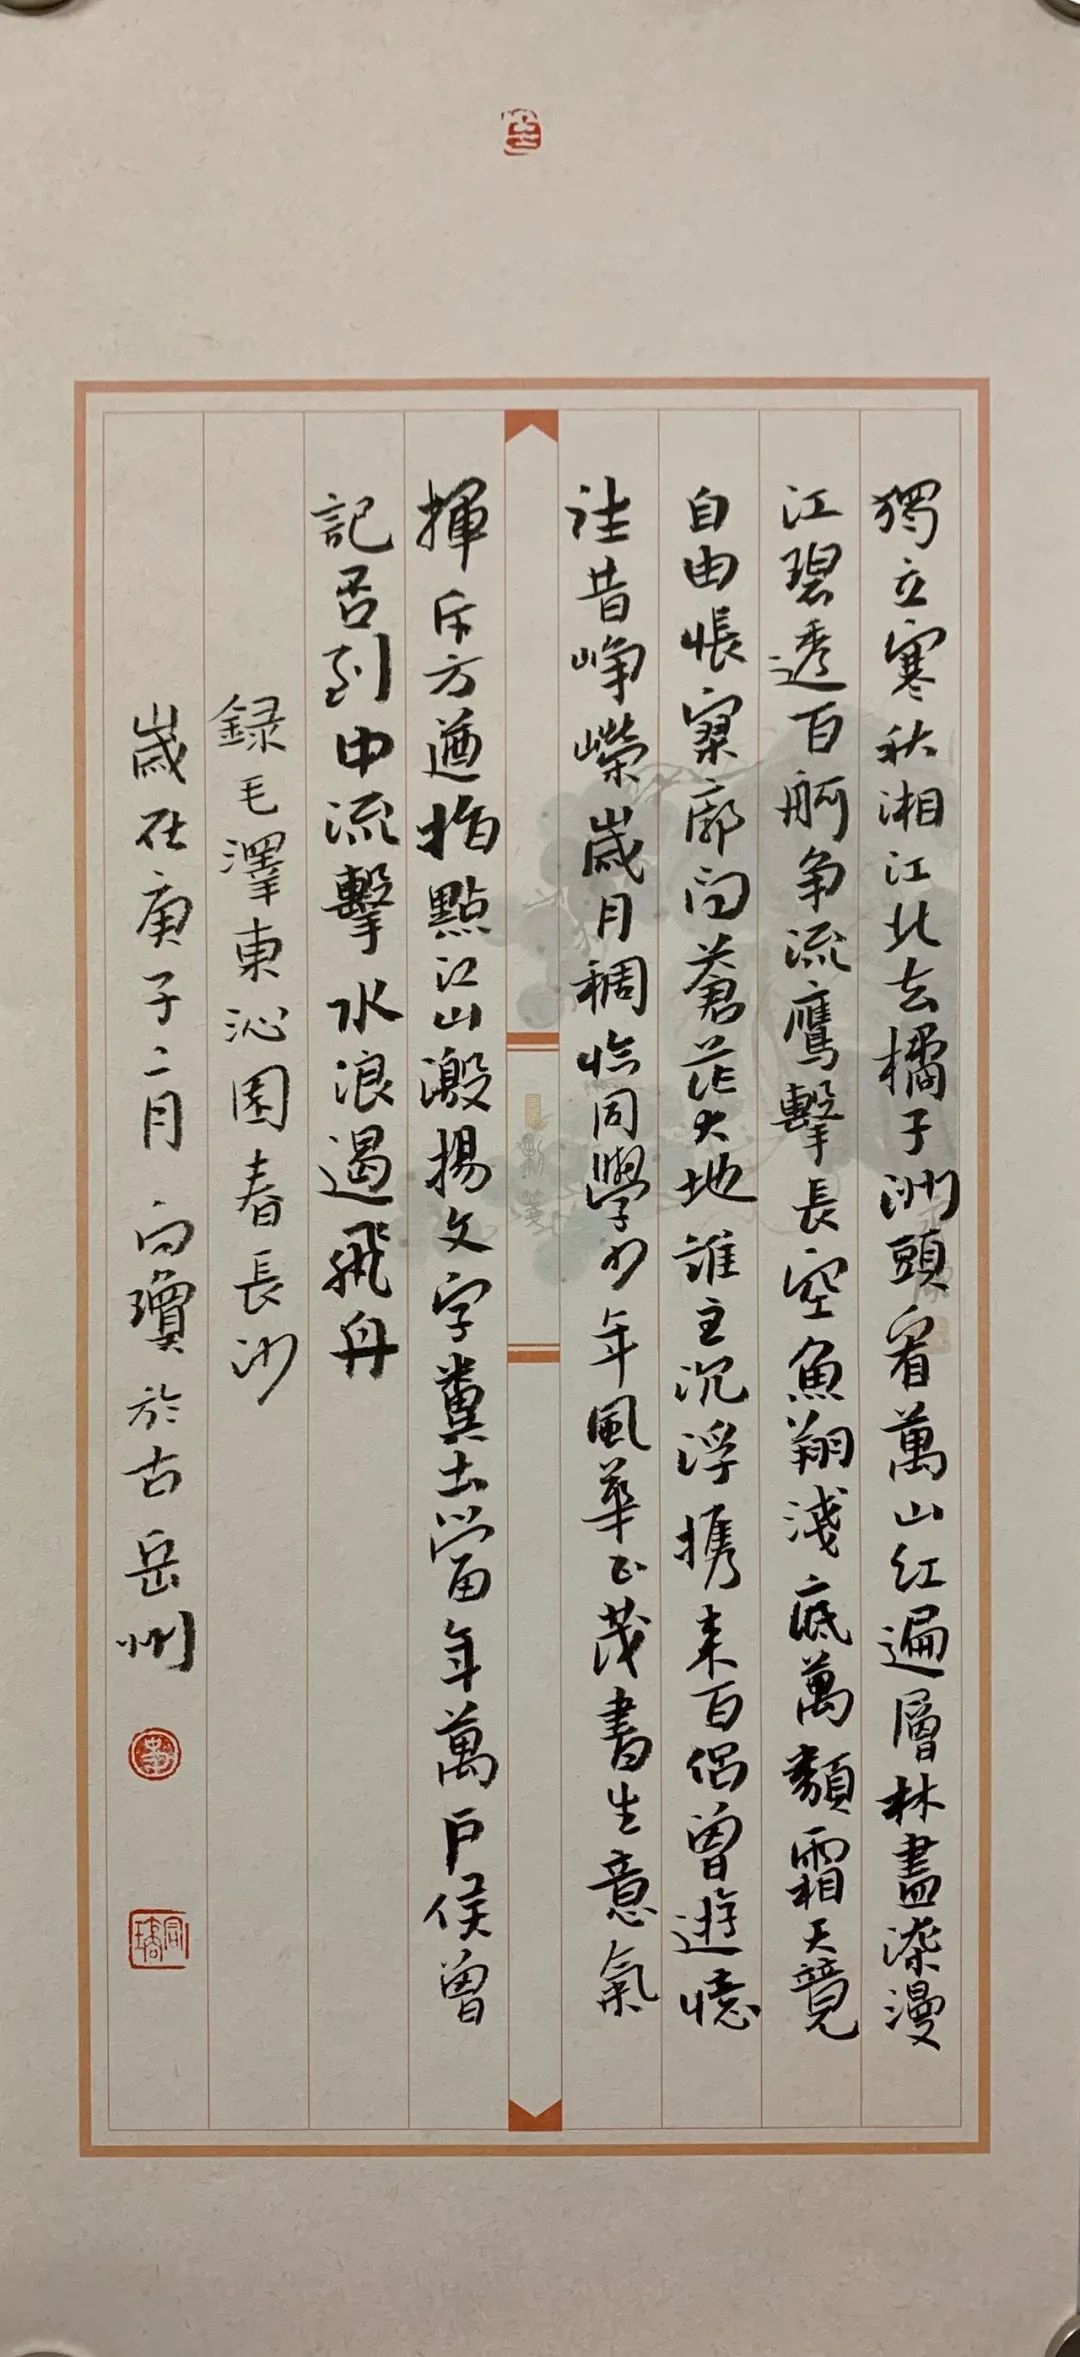 獨立寒秋湘江北去橘子洲頭看萬山红遍層林盡染漫
江碧透百舸争流鷹擊長空魚翔淺底萬類霜天競
自由悵寥廓问蒼茫大地誰主沉浮携来百侣曾遊憶
往昔崢嶸歲月稠恰同學少年風華正茂書生意氣
揮斥方遒指點江山激揚文字糞土當年萬户侯曾
記否到中流擊水浪遏飛舟
録毛澤東沁園春長沙
歲在庚子二月 向瓊於古岳州